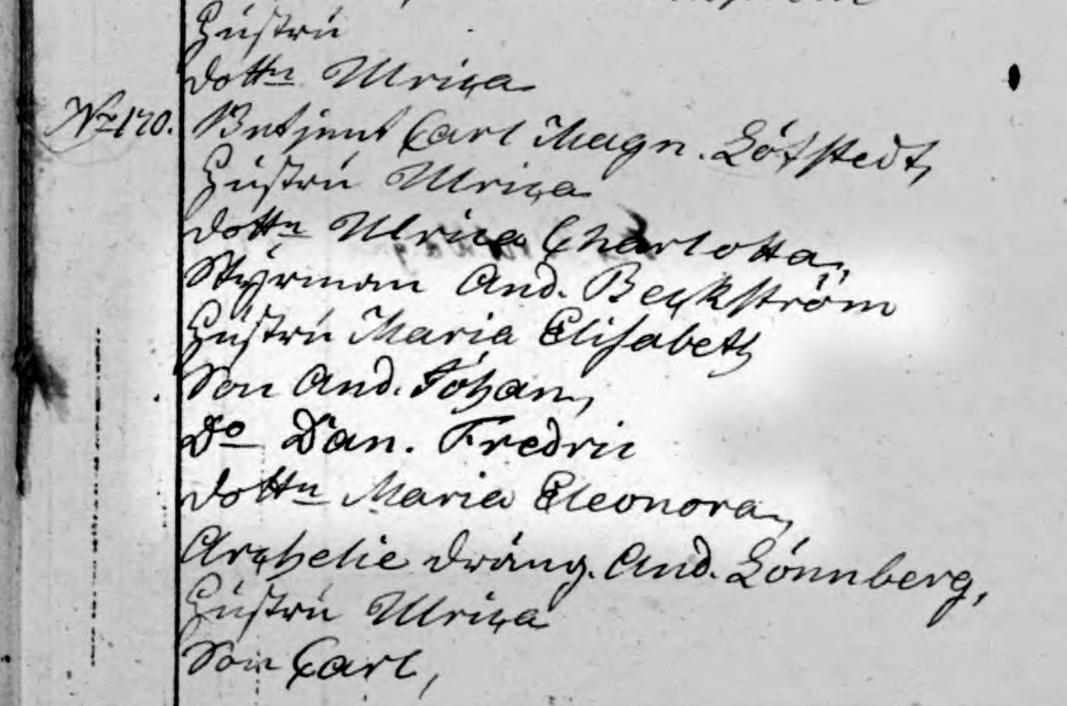 Hustru
dottn Ulrica
No 170. Betjent Carl Magn. Löfstedt,
Hustru Ulrica
dottn Ulrica Charlotta,
Styrman And. Beckström
Hustru Maria Elisabeth
Son And. Johan,
Do Dan. Fredric
dottn Maria Eleonora,
dräng. And. Lönnberg,
Hustru Ulrica
Son Carl,